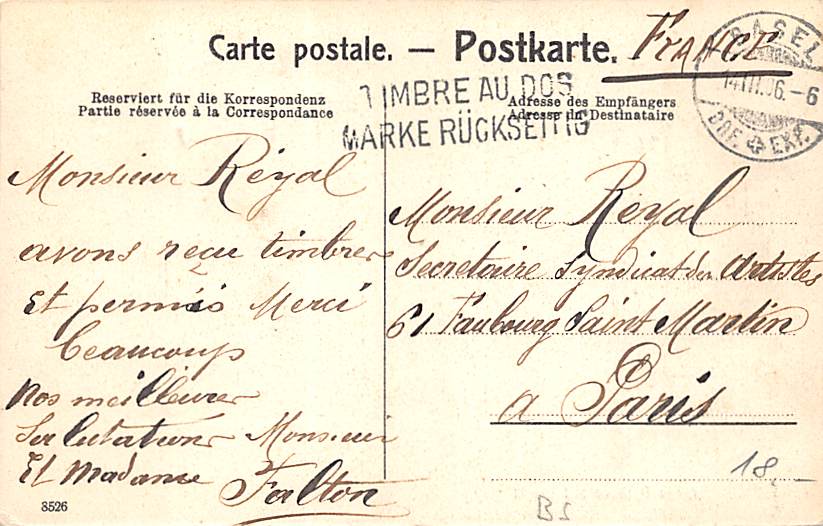 Carte postale. — Postkarte.
FRANCE
BASEL
14.III.06.-6
BRF. EXP.
TIMBRE AU DOS
MARKE RÜCKSEITIG
Reserviert für die Korrespondenz
Partie réservée à la Correspondance
Adresse des Empfängers
Adresse du Destinataire
Monsieur Réyal
avons reçu timbres
Et permis Merci
beaucoup
Nos meilleures
Salutations Monsieur
Et Madame
Falton
3526
Monsieur Reyal
Secretaire Syndicat des Artistes
61 Faubourg Saint Martin
a Paris
18,-
BS